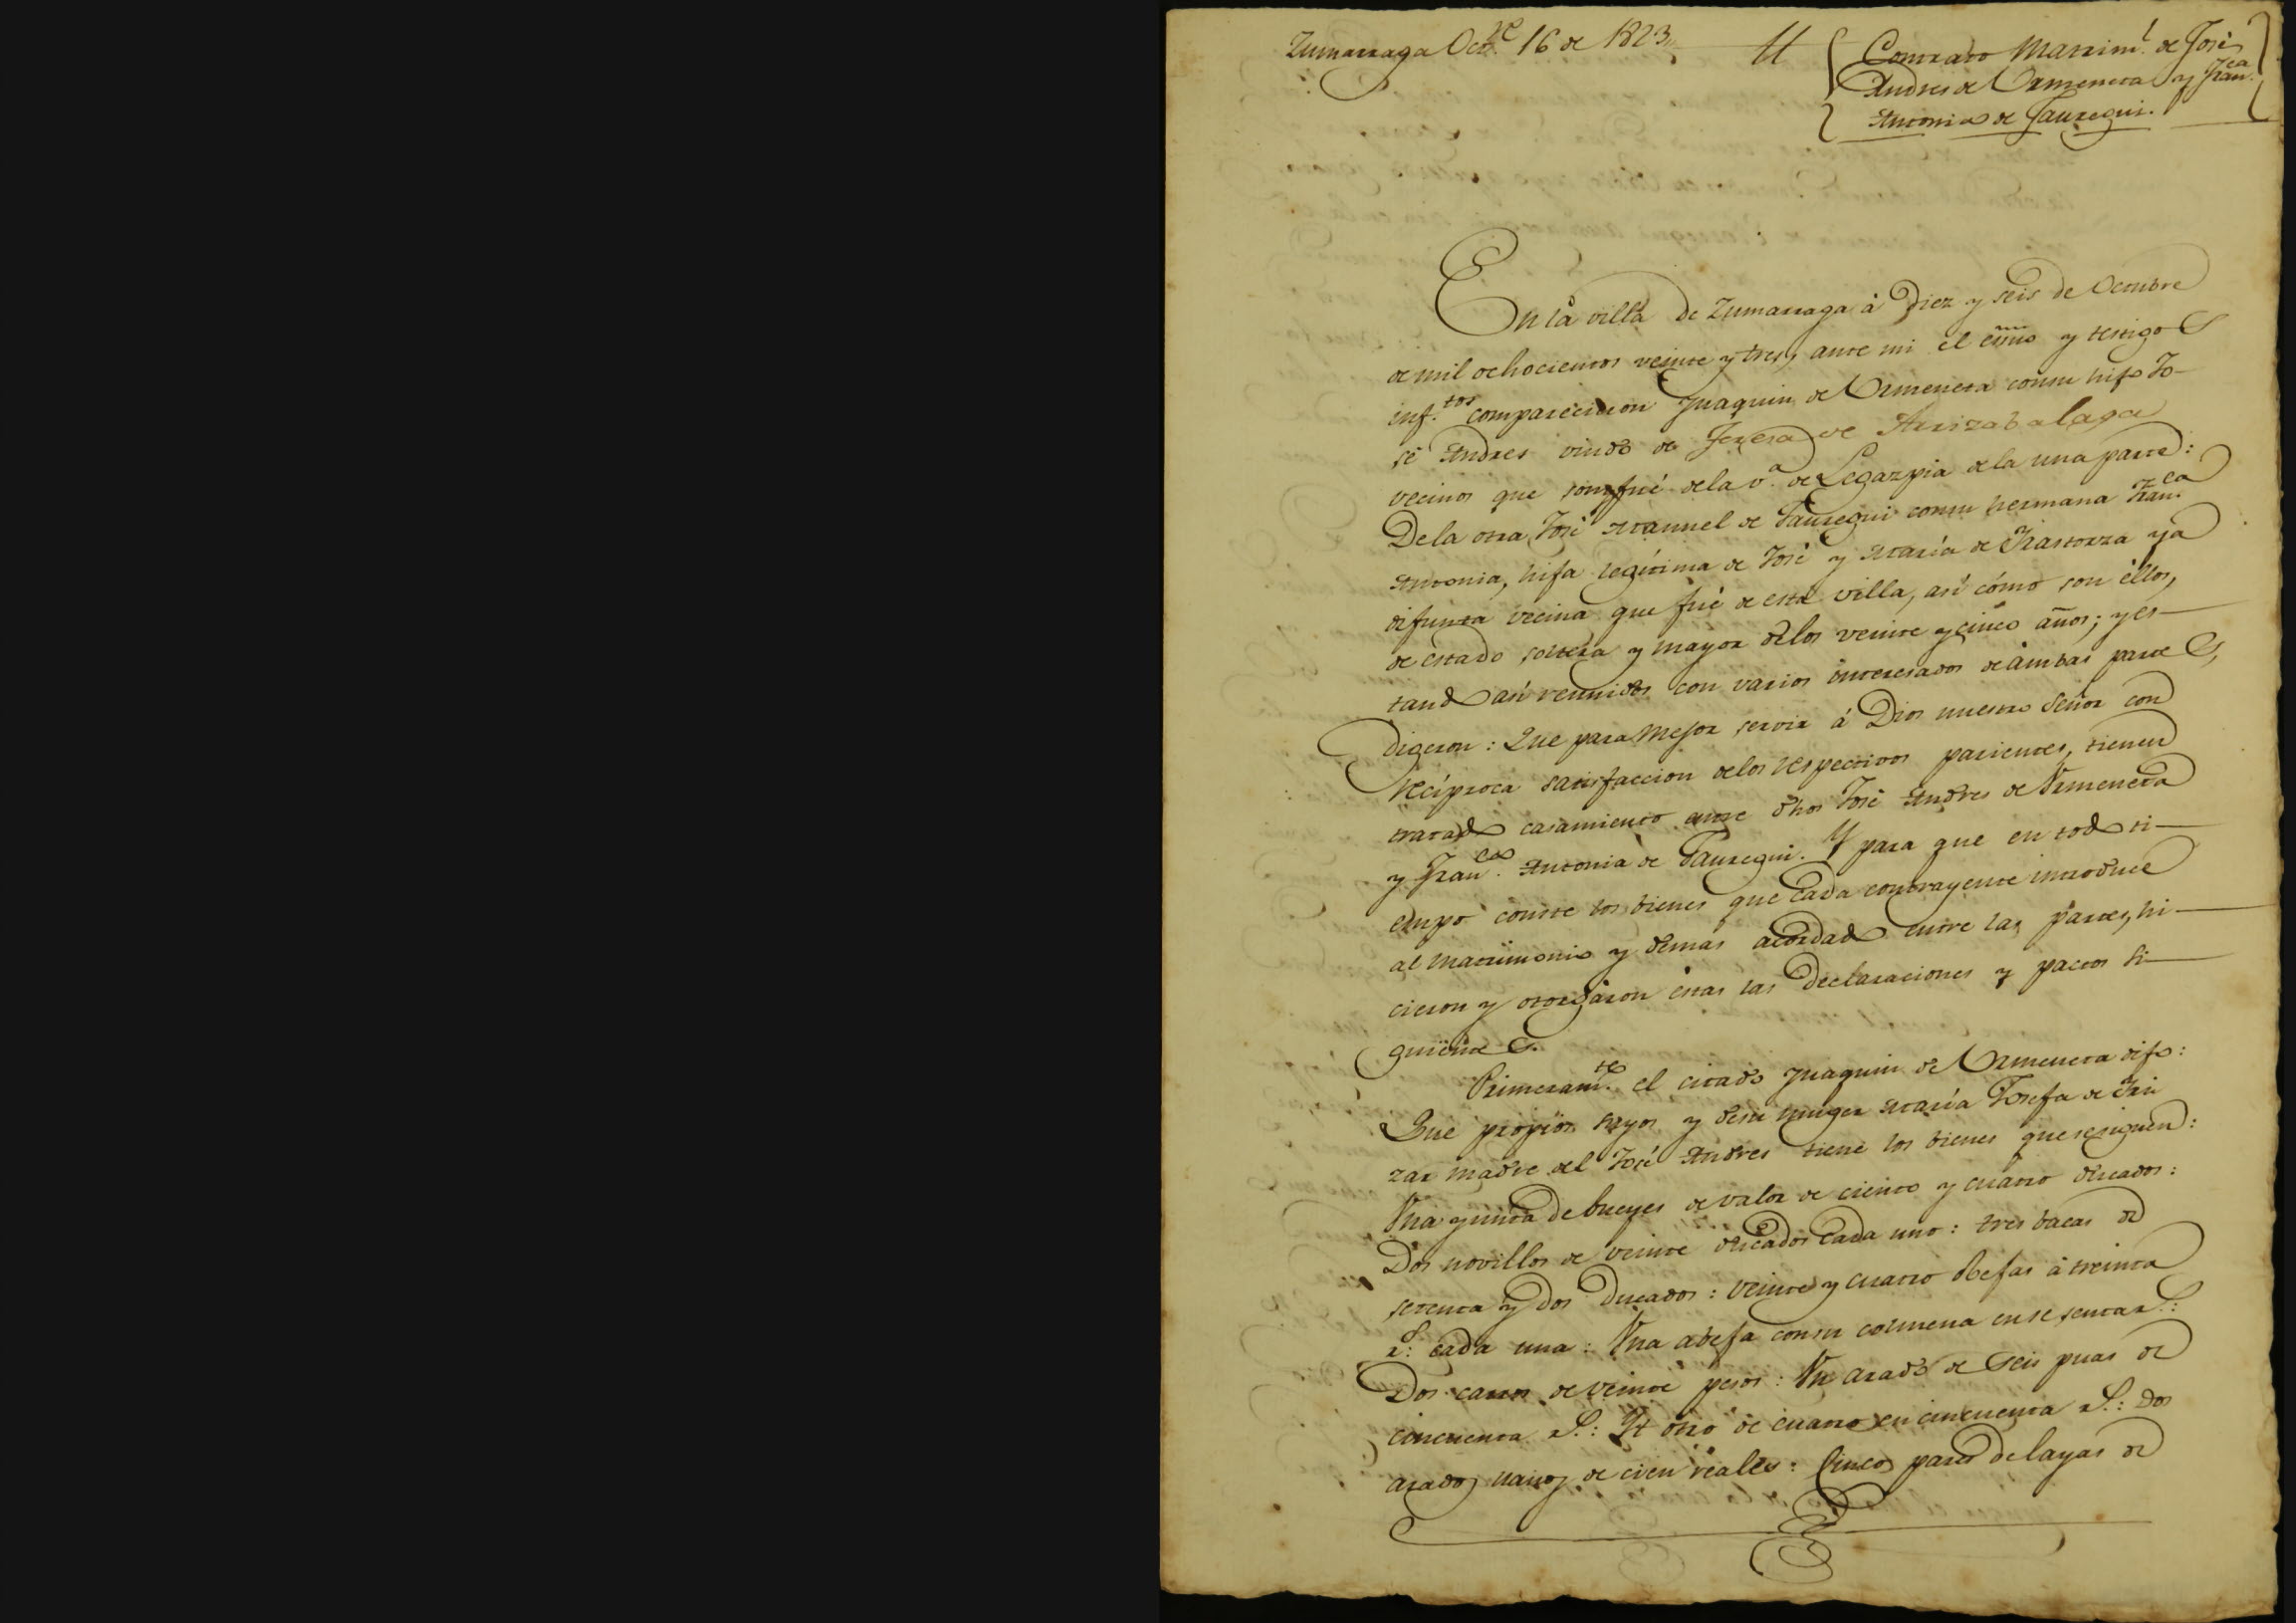 Zumarraga Oct.re 16 de 1823
Contrato Matrim.l de José
Andres de Urmeneta y Fran.ca
Antonia de Jauregui.
En la villa de Zumarraga à Diez y seis de Octubre
de mil ochocientos veinte y tres, ante mi el essno y testigos
inf.tos comparecieron Juaquin de Urmeneta con su hijo Jo-
sé Andres viudo de Jeresa de Arrizabalaga
vecinos que son y fué de la v.a de Legazpia de la una parte:
De la otra José Manuel de Jauregui con su hermana Fran.ca
Antonia, hija legítima de José y María de Irastorza ya
difunta vecina que fué de esta villa, así cómo son éllos,
de estado soltera y mayor de los veinte y cinco años; y es-
tando así reunidos con varios interesados de ámbas partes,
digeron: Que para mejor servir á Dios nuestro Señor con
recíproca satisfaccion de los respectivos parientes, tienen
tratado casamiento entre dhos José Andres de Urmeneta
y Fran.ca Antonia de Jauregui. Y para que en todo ti-
empo conste los bienes que cada contrayente introduce
al matrimonio y demas acordado entre las partes, hi-
cieron y otorgaron éstas las declaraciones y pactos si-
guientes.
Primeram.te el citado Juaquin de Urmeneta dijo:
Que propios suyos y de su muger María Josefa de Iri
zar madre del José Andres tiene los bienes que se siguen:
Una yunta de bueyes de valor de ciento y cuatro ducados:
Dos novillos de veinte ducados cada uno: tres bacas de
setenta y dos ducados: veinte y cuatro obejas à treinta
r.s: cada una: Una abeja con su colmena en sesenta r.s:
Dos carros de veinte pesos: Un arado de seis puas de
cincuenta r.s: Yt otro de cuatro en cincuenta r.s: dos
arados de cien reales: Cinco pares de layas de